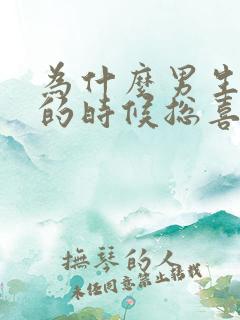 為什麼男生
的時候總喜
撫琴的人
未經同意禁止轉載